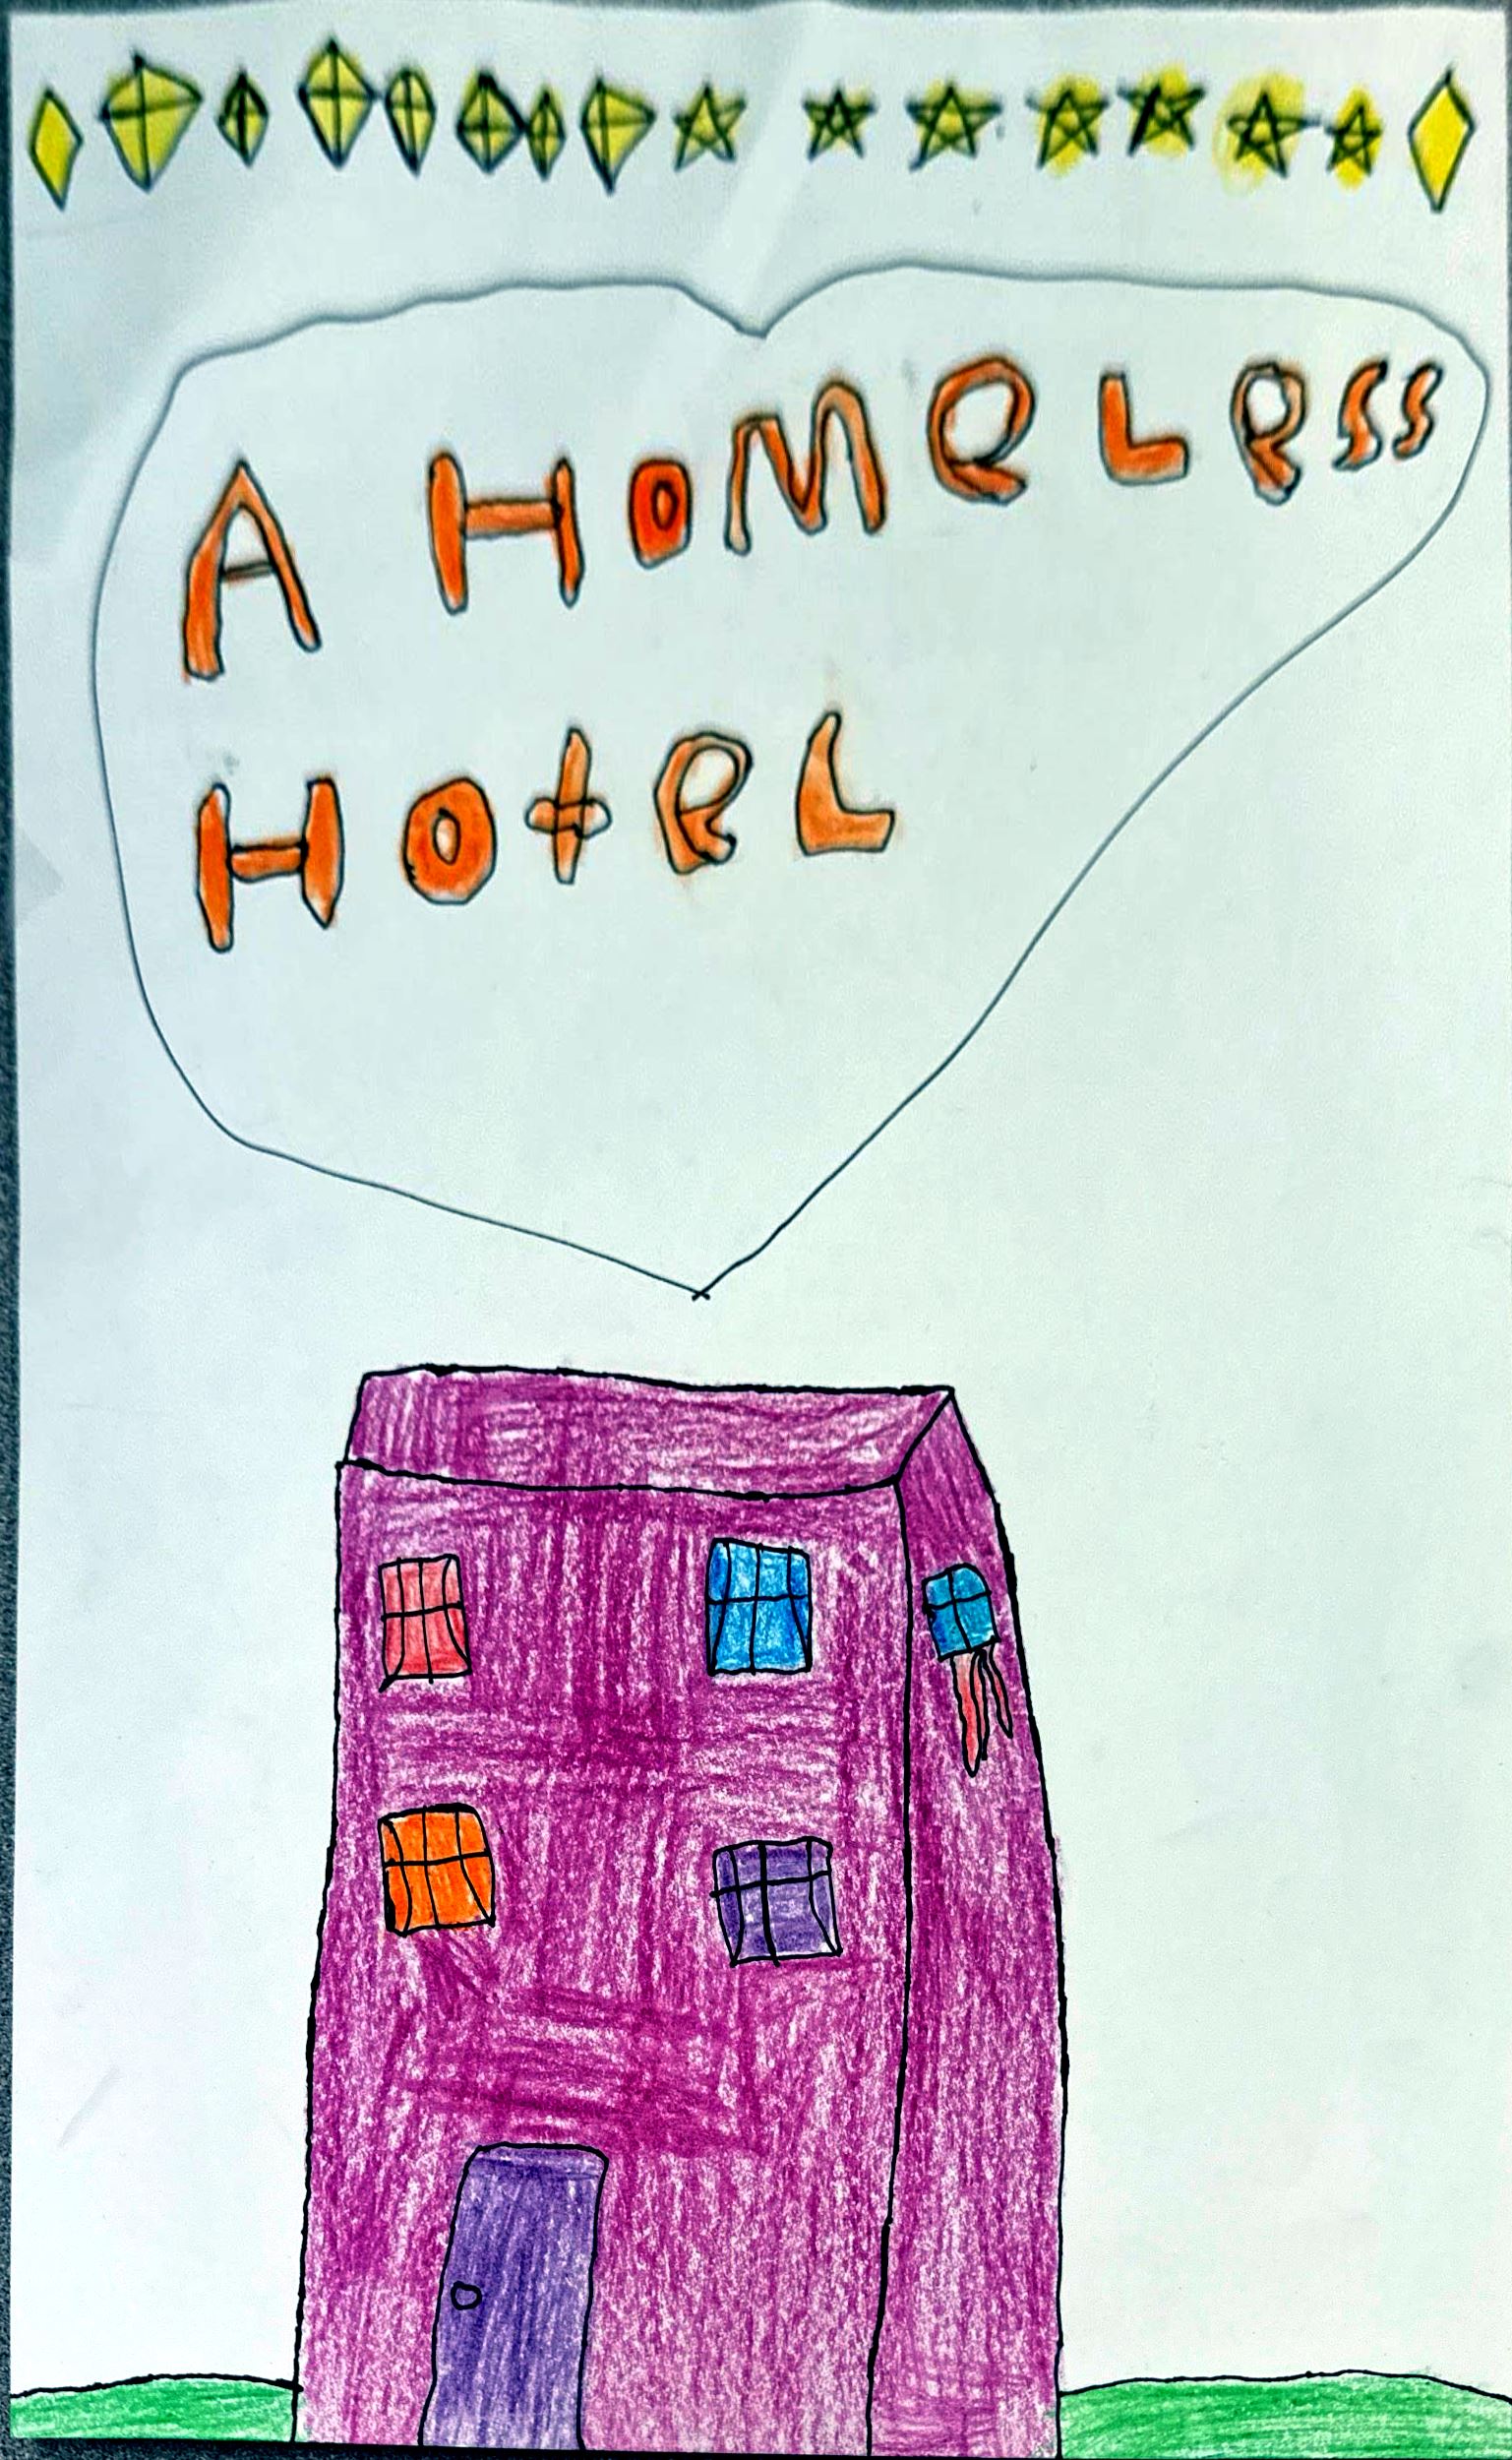 A HOMeLess
HOteL